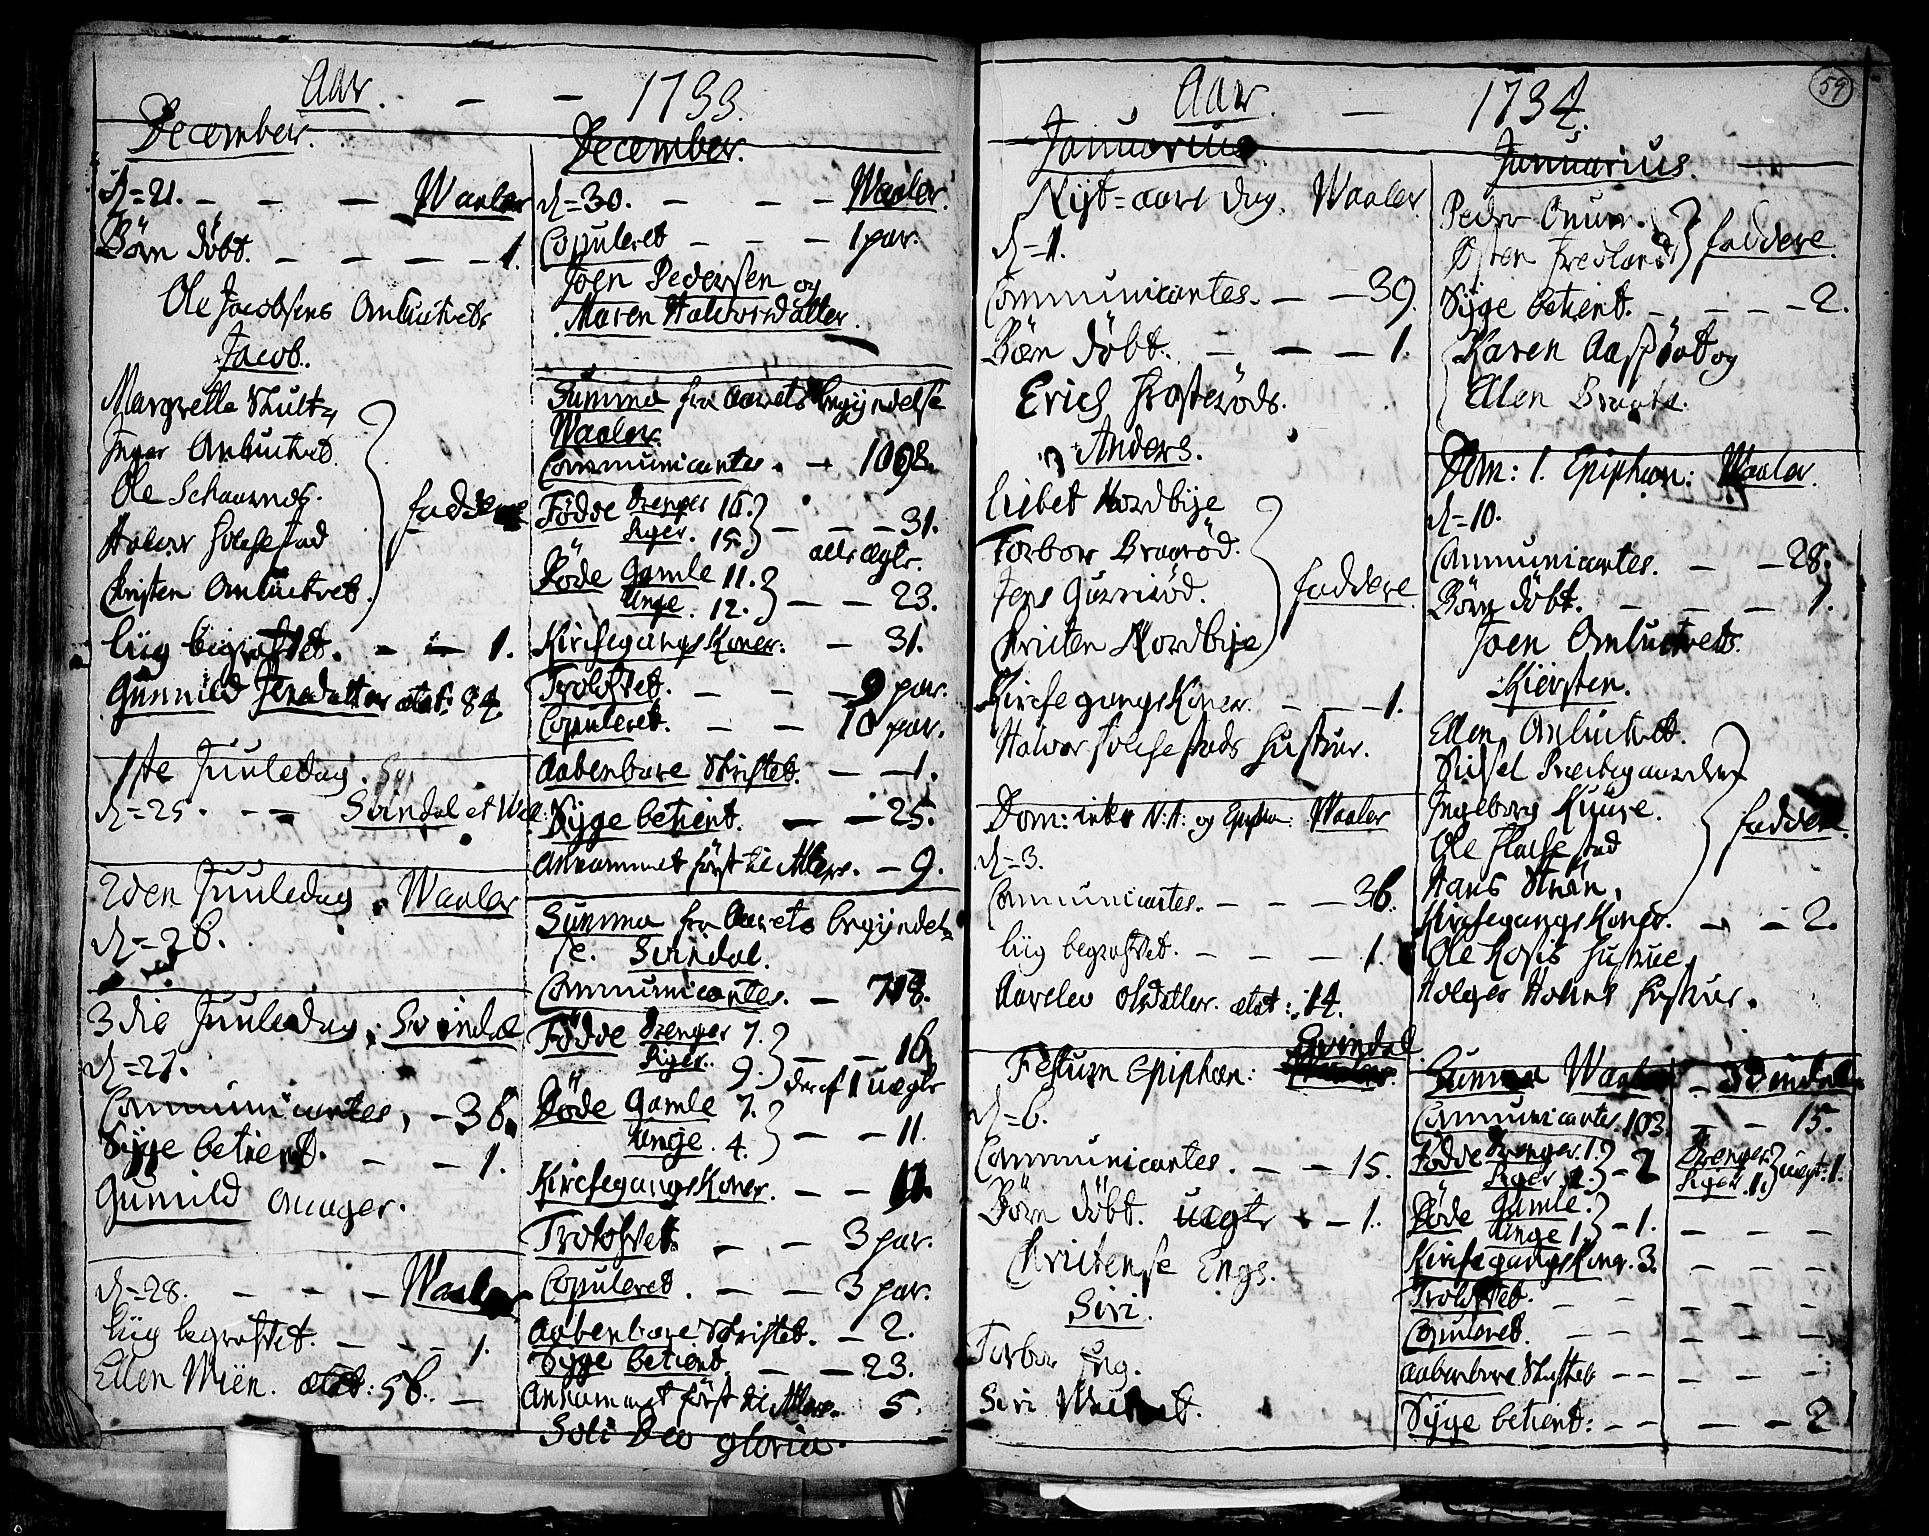 Aar. - - 1733.
December.
d=21. - - - Waaler
Börn döbt. - - - - 1.
Ole Jacobsens Ambuetvet
Jacob.
Margrette Skultz
Inger Ambuetvet.
Ole Schaarnes.
Halvor Folchestad
Christen Ambuetvet.
faddere
Liig begrafvet. - - 1.
Gunnild Iversdatter ætat: 84.
1ste Juuledag.
d=25. - - Svindal et Waal.
2den Juuledag. Waaler
d=26.
3die Juuledag. Svindal
d=27.
Communicantes, - 36.
Syge betient. - - 1.
Gunnild Anager.
d=28. - - - Waaler
Liig begrafvet. - - - 1.
Ellen Mien. ætat: 56. -
December.
d=30. - - - Waaler.
Copuleret - - - 1 par.
Joen Pedersen og
Maren Halvorsdatter.
Summa fra Aarets begyndelse
Waaler.
Communicantes. - 1098.
Födde Drenger 16.
Piger. 15. - - - 31.
alle ægte.
Döde Gamle 11.
Unge. 12. - - 23.
Kirchegangs Koner: - 31.
Trolofvet. - - - 9 par.
Copuleret. - - 10 par.
Aabenbare Skriftet. - - 1.
Syge betient. - - 25.
Annammet först til Alters. - 9.
Summa fra Aarets begyndel=
se. Svindal.
Communicantes. - 718.
Födde Drenger 7.
Piger. 9. - - 16
deraf 1 uægte
Döde Gamle 7.
Unge. 4. - - 11.
Kirchegangs Koner. - - 11.
Trolofvet. - - 3 par.
Copuleret. - - 3 par.
Aabenbare Skriftet. - 2.
Syge betient. - - 23.
Annammet först til Alters. 5.
Soli Deo gloria.
59
Aar. - 1734.
Januarius.
Nyt=aars dag. Waaler.
d=1.
Communicantes. - - 39.
Börn döbt. - - - 1.
Erich Frosteröds.
Anders.
Lisbet Nordbye
Torbor Bragröd.
Jens Gurriröd.
Christen Nordbye
faddere.
Kirchegangs Koner. - - - 1.
Halvor Folchestads hustrue.
Dom: inter N:A: og Epiphan: Waaler
d=3.
Communicantes. - - - 36.
Liig begrafvet. - - - 1.
Aarelev Olsdatter. ætat: 14.
Festum Epiphan: Svindal
d=6.
Communicantes. - - 15.
Börn döbt. uægte - 1.
Christense Engs.
Siri.
Torbor Eng.
Siri
Januarius.
Peder Onum.
Östen Fredland
faddere.
Syge betient. - - - - 2.
Karen Aasröd og
Ellen Bragta.
Dom: 1. Epiphan: Waaler.
d=10.
Communicantes. - - 28.
Börn döbt. - - - 1.
Joen Ambuetvets.
Kiersten.
Ellen Ambuetvet.
Sidsel Præstegaarden
Ingeborg Kuure.
Ole Flachestad
Hans Strön,
faddere.
Kirchegangs Koner. - - 2.
Ole Rosis hustrue.
Holger Holms hustrue.
Summa Waaler - Svindal
Communicantes. 103. - - 15.
Födde Drenger. 1.
Piger. 1. - 2 Drenger.
Piger. 1. uægt. 1.
Döde Gamle.
Unge 1. - 1. - - -
Kirchegangs Kone. 3. - - -
Trolofvet. - - - - -
Copuleret. - - - - -
Aabenbare Skriftet - - - - -
Syge betient: - - - - 2